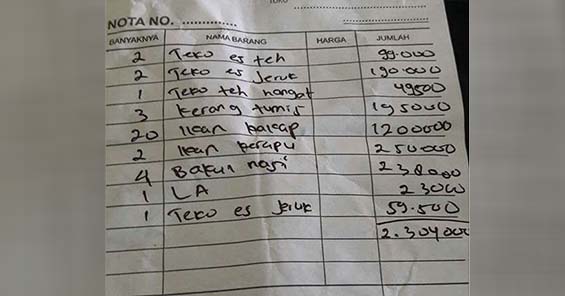 TOKO
NOTA NO.
BANYAKNYA NAMA BARANG HARGA JUMLAH
2 Teko es teh 99.000
2 Teko es Jeruk 190.000
1 Teko teh hangat 49500
3 kerang tumis 195000
20 Ikan kakap 1200000
2 Ikan kerapu 250000
4 Bakul nasi 238000
1 LA 23000
1 Teko es Jeruk 59.500
2.304.000